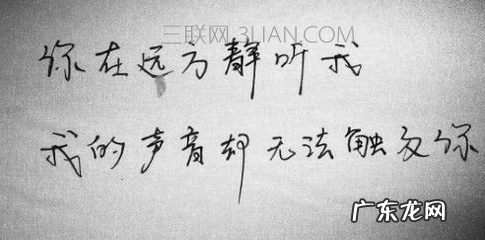 三联网 3LIAN.COM
你在远方静听我
我的声音却无法触及你
广东龙网